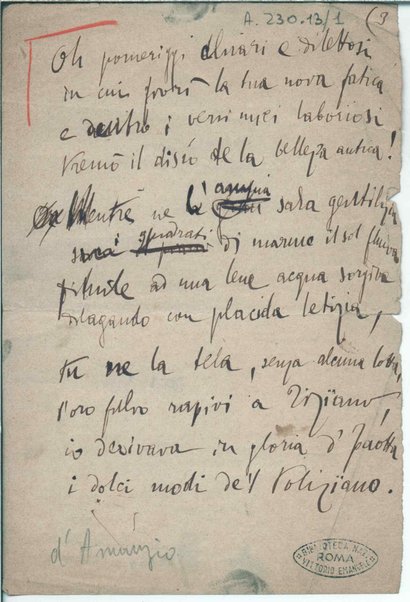 A. 230.13/1 (3
Oh pomeriggi chiari e dilettosi
in cui fiorì la tua nova fatica
e dentro i versi miei laboriosi
tremò il disío de la bellezza antica!
Mentre ne l'ampia sala gentilizia
quadrati di marmo il sol fluiva
simile ad una lene acqua sorgiva
dilagando con placida letizia,
tu ne la tela, senza alcuna lotta,
l'oro fulvo rapivi a Tiziano,
io derivava in gloria d'Isaotta
i dolci modi del Poliziano.
d'Annunzio
BIBLIOTECA NAZ.
ROMA
VITTORIO EMANUELE